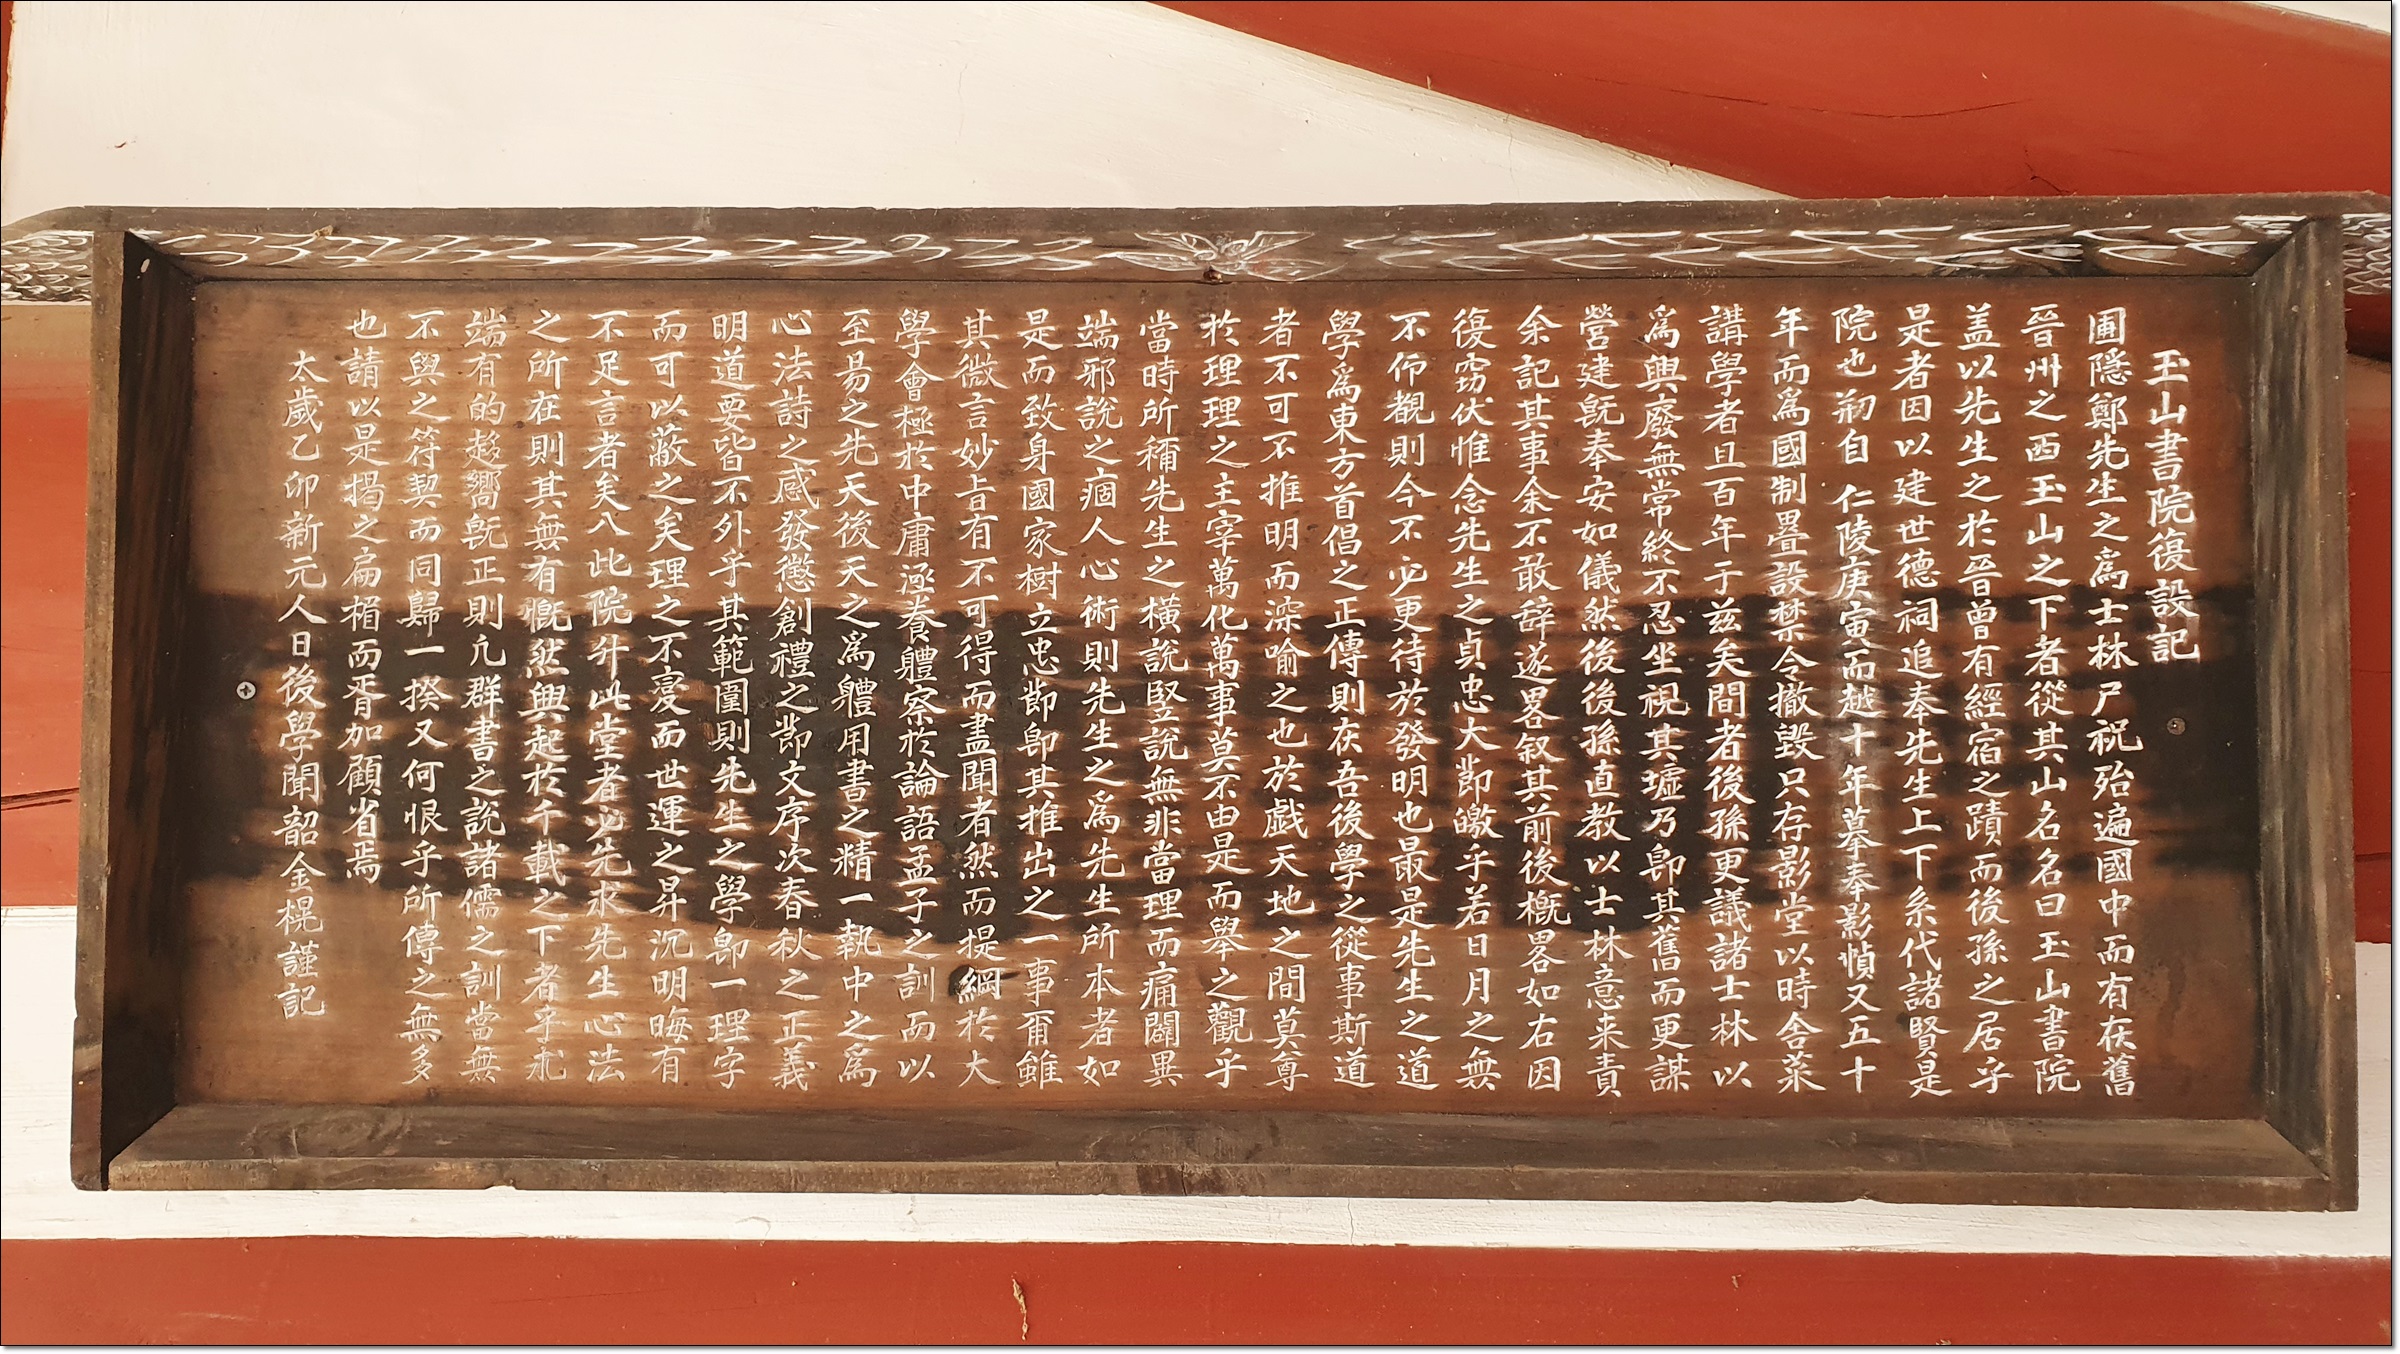 玉山書院復設記
圃隱鄭先生之爲士林尸祝殆遍國中而有在舊
晉州之西玉山之下者從其山名名曰玉山書院
盖以先生之於晉曾有經宿之蹟而後孫之居乎
是者因以建世德祠追奉先生上下系代諸賢是
院也刱自 仁陵庚寅而越十年摹奉影幀又五十
年而爲國制疊設禁令撤毀只存影堂以時舍菜
講學者且百年于玆矣間者後孫更議諸士林以
爲興廢無常終不忍坐視其墟乃卽其舊而更謀
營建旣奉安如儀然後後孫直教以士林意来責
余記其事余不敢辞遂畧叙其前後槪畧如右因
復窃伏惟念先生之貞忠大莭皦乎若日月之無
不仰覩則今不必更待於發明也最是先生之道
學爲東方首倡之正傳則在吾後學之從事斯道
者不可不推明而深喻之也於戯天地之間莫尊
於理理之主宰萬化萬事莫不由是而舉之觀乎
當時所稱先生之橫說竪說無非當理而痛闢異
端邪說之痼人心術則先生之爲先生所本者如
是而致身國家樹立忠莭卽其推出之一事爾雖
其微言妙旨有不可得而盡聞者然而提綱於大
學會極於中庸涵養軆察於論語孟子之訓而以
至易之先天後天之爲軆用書之精一執中之爲
心法詩之感發懲創禮之莭文序次春秋之正義
明道要皆不外乎其範圍則先生之學卽一理字
而可以蔽之矣理之不変而世運之昇沉明晦有
不足言者矣入此院升此堂者必先求先生心法
之所在則其無有慨然興起於千載之下者乎永
端有的趍嚮旣正則凢群書之說諸儒之訓當無
不與之符契而同歸一揆又何恨乎所傳之無多
也請以是揭之扁楣而胥加顧省焉
太歲乙卯新元人日後學聞韶金榥謹記